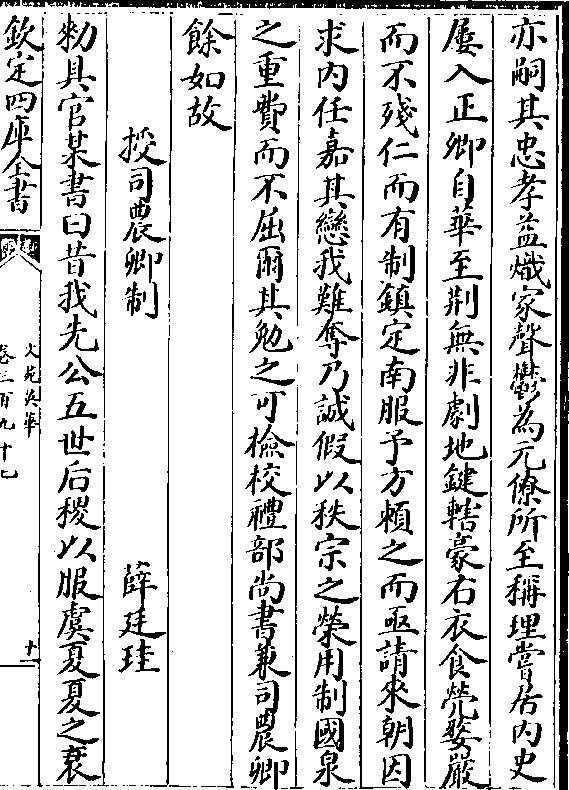 亦嗣其忠孝益熾家聲鬱為元僚所至稱理嘗居内史
屢入正卿自華至荆無非劇地鍵轄豪右衣食煢嫠嚴
而不殘仁而有制鎮定南服予方頼之而亟請來朝因
求内任嘉其戀我難奪乃誠假以秩宗之榮用制國泉
之重費而不屈爾其勉之可檢校禮部尚書兼司農卿
餘如故
授司農卿制 薛廷珪
勑具官某書曰昔我先公五世后稷以服虞夏夏之衰
欽定四庫全書
文苑英華
卷三百九十七
十一